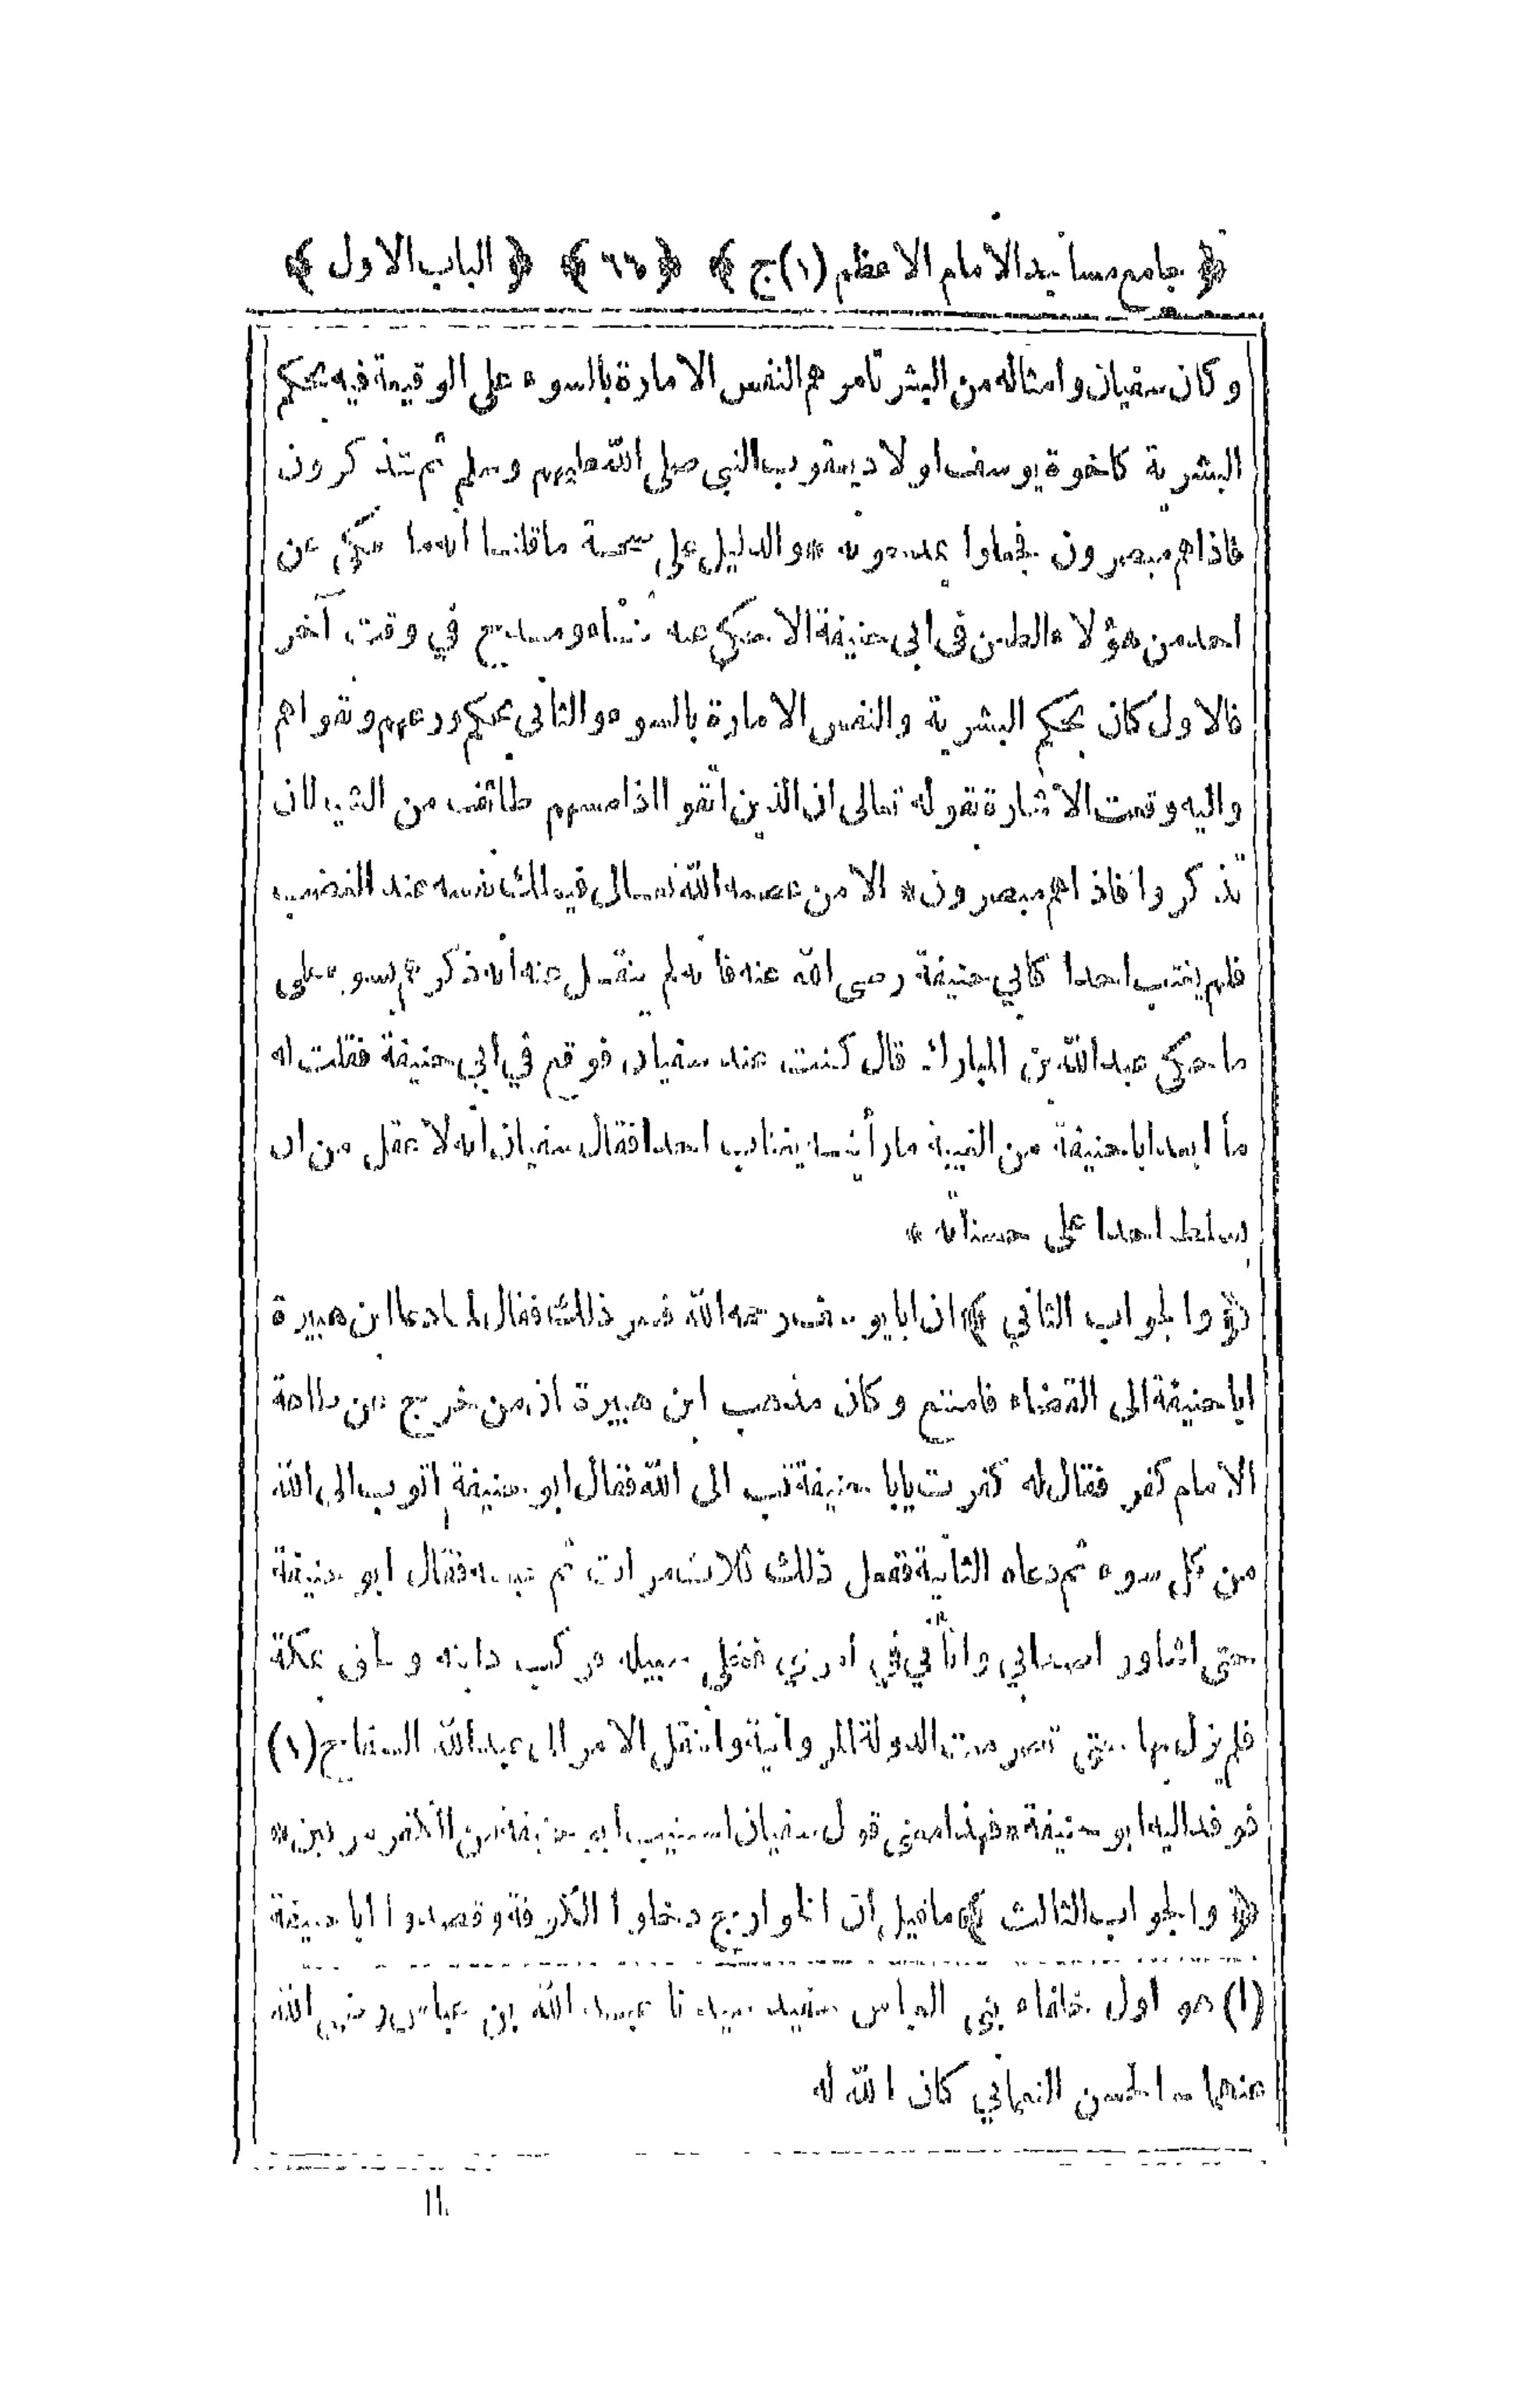 ﴿ جامع مسانيد الامام الاعظم (١) ج ﴾ ﴿ ٦٦ ﴾ ﴿ الباب الاول ﴾
وكان سفيان وامثاله من البشر تأمرهم النفس الامارة بالسوء على الوقيعة فيه بحكم
البشرية كاخوة يوسف اولاد يعقوب النبى صلى الله عليهم وسلم ثم تتذكرون
فاذاهم مبصرون فيخملوا يمدحونه * والدليل على صحة ما قلنا انه ما حكى عن
احد من هؤلاء الطعن فى ابى حنيفة الا حكى عنه ثناء ومديح في وقت آخر
فالاول كان بحكم البشرية والنفس الامارة بالسوء والثانى بحكم ورعهم وتقواهم
واليه وقعت الاشارة بقوله تعالى ان الذين اتقوا اذا مسهم طائف من الشيطان
تذكروا فاذاهم مبصرون * الا من عصمه الله تعالى فيملك نفسه عند الغضب
فلم يغتب احدا كابي حنيفة رضى الله عنه فانه لم ينقل عنه انه ذكر بسوء على
ما حكى عبد الله بن المبارك قال كنت عند سفيان فوقع في ابي حنيفة فقلت له
ما ابعد ابا حنيفة من الغيبة ما رأيته يغتاب احدا فقال سفيان انه لاعقل من ان
يسلط احدا على حسناته *
﴿ والجواب الثاني ﴾ ان ابا يوسف رحمه الله فسر ذلك فقال لما دعا ابن هبيرة
ابا حنيفة الى القضاء فامتنع وكان مذهب ابن هبيرة ان من خرج عن طاعة
الامام كفر فقال له كفرت يابا حنيفة تب الى الله فقال ابو حنيفة اتوب الى الله
من كل سوء ثم دعاه الثانية ففعل ذلك ثلاث مرات ثم فقال ابو حنيفة
حتى اشاور اصحابي واتأني في امري فخلى سبيله فركب دابته ولحق بمكة
فلم يزل بها حتى تصرمت الدولة المروانية وانتقل الامر الى عبد الله السفاح (١)
فوفد اليه ابو حنيفة * فهذا معنى قول سفيان استتيب ابو حنيفة من الكفر مرتين *
﴿ والجواب الثالث ﴾ ما قيل ان الخوارج دخلوا الكوفة وقصدوا ابا حنيفة
(١) هو اول خلفاء بنى العباس حفيد سيدنا عبد الله بن عباس رضى الله
عنهما - الحسن النعماني كان الله له